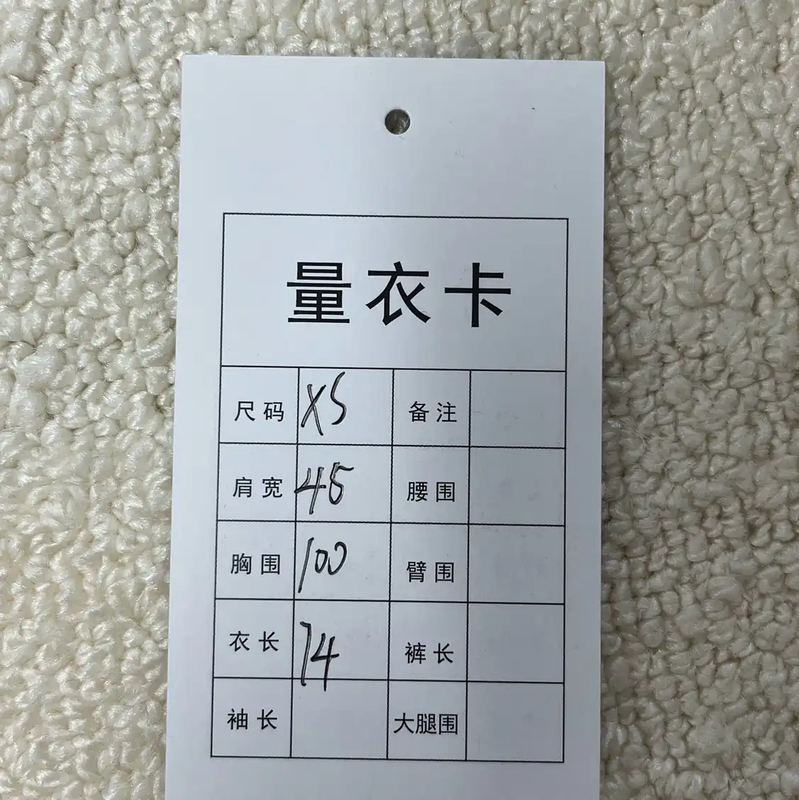 量衣卡
尺码 XS 备注
肩宽 45 腰围
胸围 100 臂围
衣长 74 裤长
袖长 大腿围